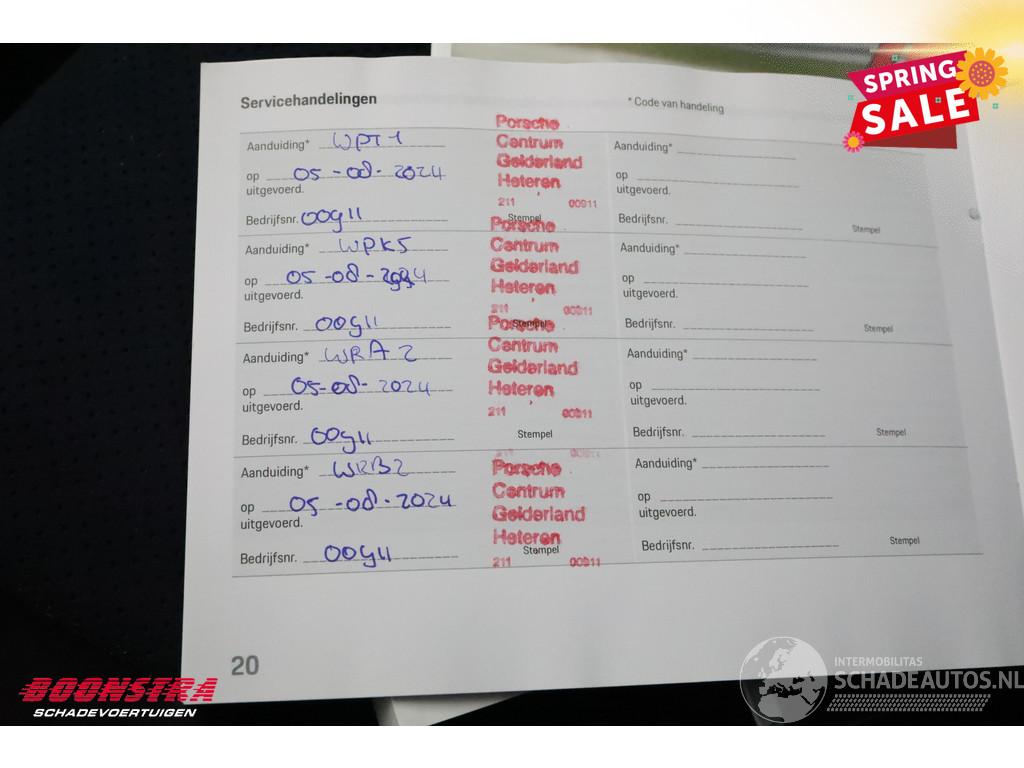 SPRING
SALE
Servicehandelingen
* Code van handeling
Aanduiding* WPT1
op 05-08-2024
uitgevoerd.
Bedrijfsnr. 00911
Porsche
Centrum
Gelderland
Heteren
211 00911
Stempel
Aanduiding*
op
uitgevoerd.
Bedrijfsnr.
Stempel
Aanduiding* WPK5
op 05-08-2024
uitgevoerd.
Bedrijfsnr. 00911
Porsche
Centrum
Gelderland
Heteren
211 00911
Stempel
Aanduiding*
op
uitgevoerd.
Bedrijfsnr.
Stempel
Aanduiding* WRA2
op 05-08-2024
uitgevoerd.
Bedrijfsnr. 00911
Porsche
Centrum
Gelderland
Heteren
211 00911
Stempel
Aanduiding*
op
uitgevoerd.
Bedrijfsnr.
Stempel
Aanduiding* WRB2
op 05-08-2024
uitgevoerd.
Bedrijfsnr. 00911
Porsche
Centrum
Gelderland
Heteren
211 00911
Stempel
Aanduiding*
op
uitgevoerd.
Bedrijfsnr.
Stempel
20
BOONSTRA
SCHADEVOERTUIGEN
INTERMOBILITAS
SCHADEAUTOS.NL